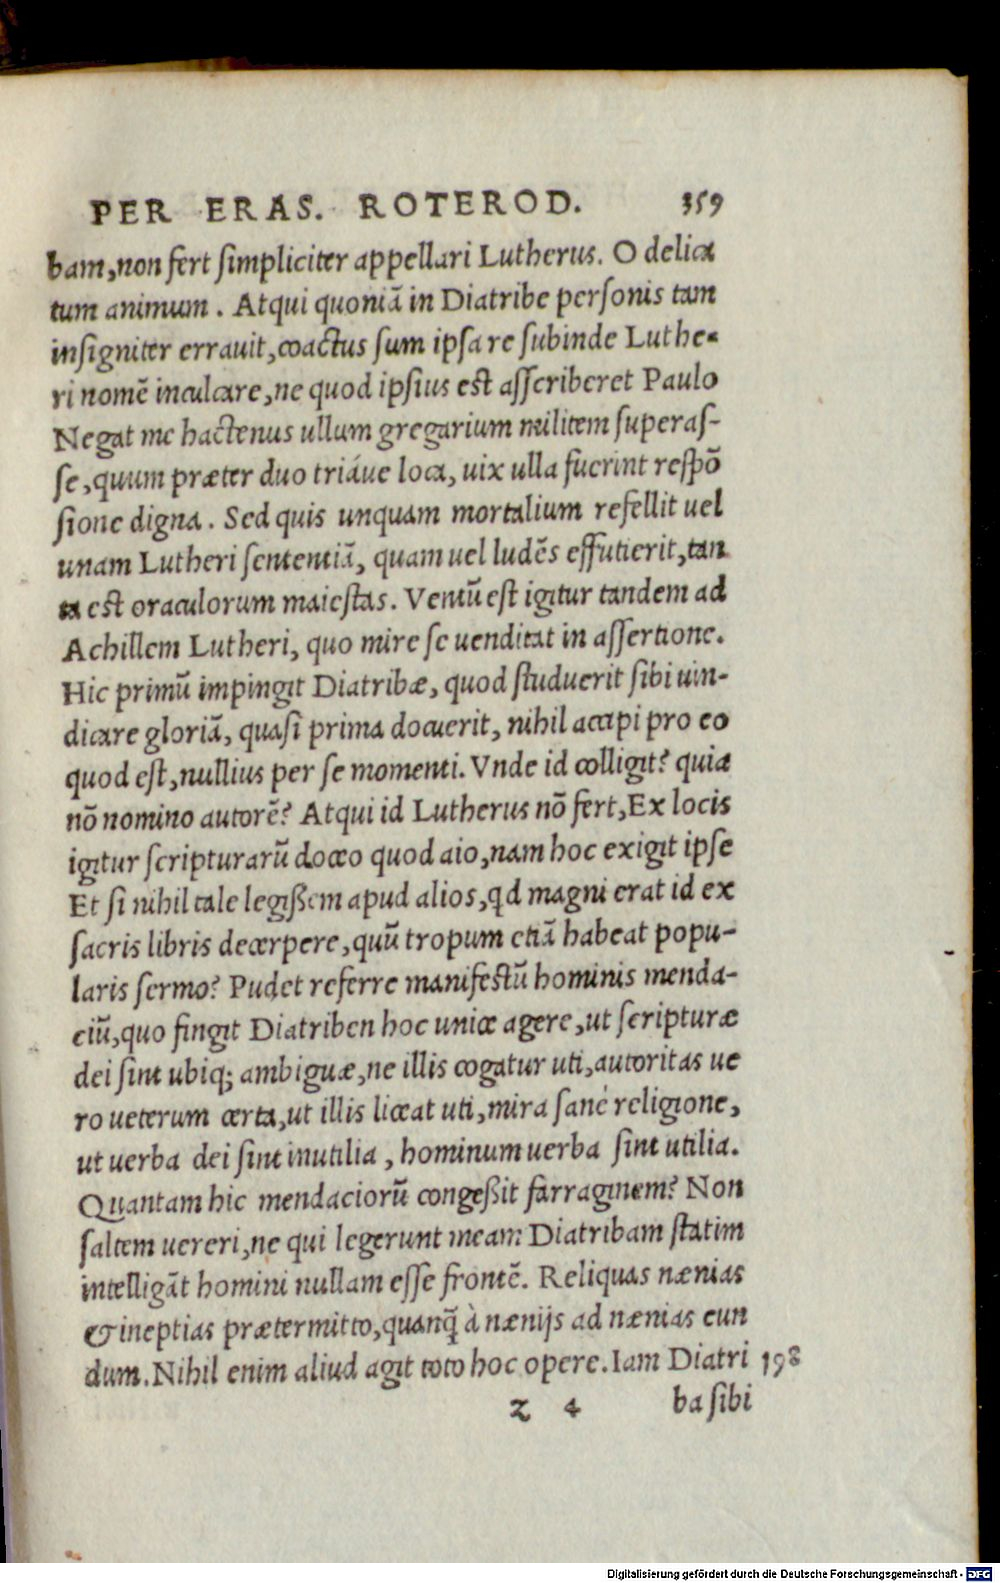 PER ERAS. ROTEROD. 359
bam,non fert simpliciter appellari Lutherus. O delica
tum animum . Atqui quoniā in Diatribe personis tam
insigniter errauit,coactus sum ipsa re subinde Luthe-
ri nomē inculcare,ne quod ipsius est asscriberet Paulo
Negat me hactenus ullum gregarium militem superas-
se,quum præter duo triáue loca, uix ulla fuerint respō
sione digna. Sed quis unquam mortalium refellit uel
unam Lutheri sententiā, quam uel ludēs effutierit,tan
ta est oraculorum maiestas. Ventū est igitur tandem ad
Achillem Lutheri, quo mire se uenditat in assertione.
Hic primū impingit Diatribæ, quod studuerit sibi uin-
dicare gloriā, quasi prima docuerit, nihil accipi pro eo
quod est,nullius per se momenti. Vnde id colligit? quia
nō nomino autorē? Atqui id Lutherus nō fert,Ex locis
igitur scripturarū doceo quod aio,nam hoc exigit ipse
Et si nihil tale legißem apud alios,qd magni erat id ex
sacris libris decerpere,quū tropum etiā habeat popu-
laris sermo? Pudet referre manifestū hominis menda-
ciū,quo fingit Diatriben hoc unice agere,ut scripturæ
dei sint ubiq; ambiguæ,ne illis cogatur uti,autoritas ue
ro ueterum certa,ut illis liceat uti,mira sanè religione,
ut uerba dei sint inutilia , hominum uerba sint utilia.
Quantam hic mendaciorū congeßit farraginem? Non
saltem uereri,ne qui legerunt meam Diatribam statim
intelligāt homini nullam esse frontē. Reliquas nænias
& ineptias prætermitto,quanq̄ à nænijs ad nænias eun
dum.Nihil enim aliud agit toto hoc opere.Iam Diatri 198
z 4 ba sibi
Digitalisierung gefördert durch die Deutsche Forschungsgemeinschaft - DFG